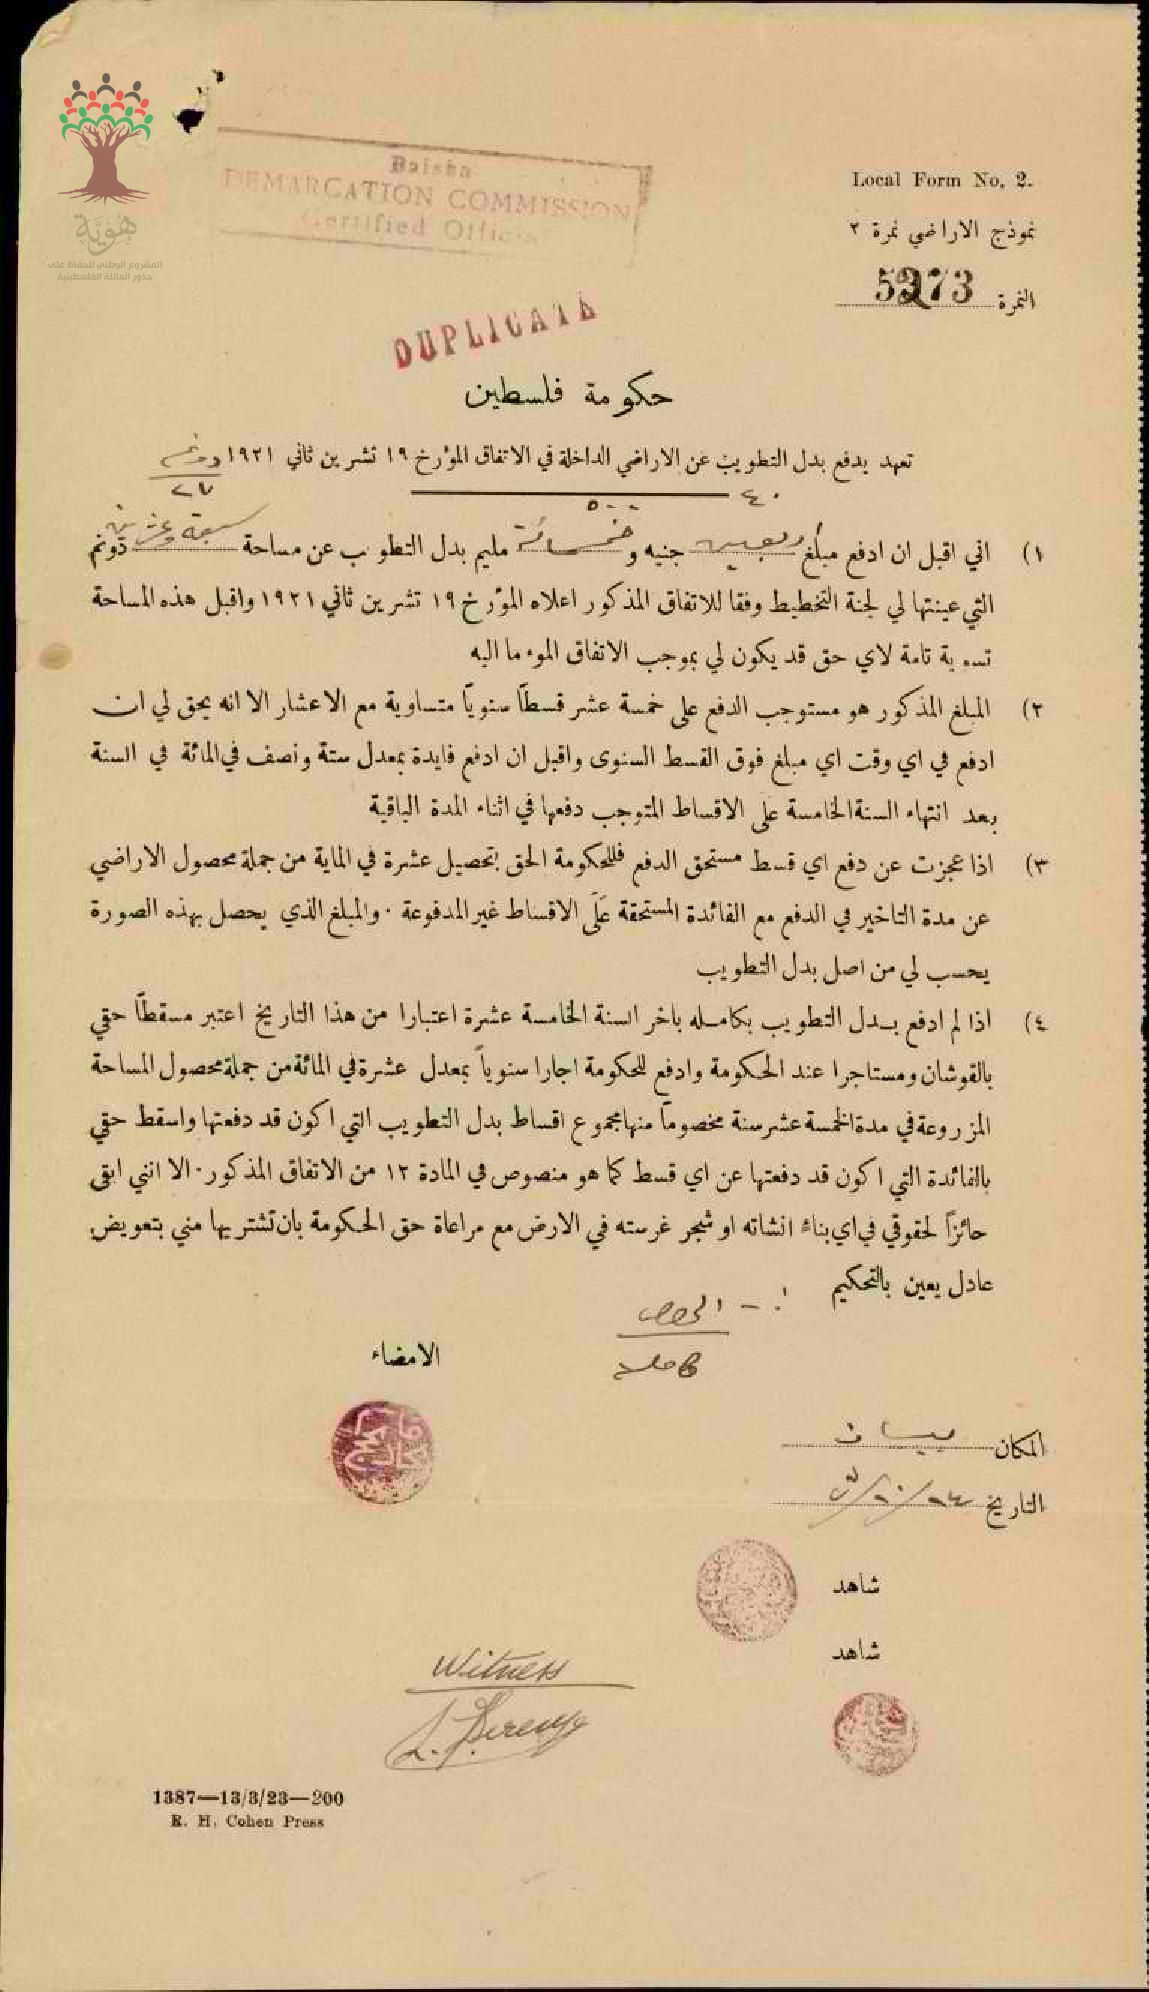 هَوِيَّة
المشروع الوطني للحفاظ على
جذور العائلة الفلسطينية
Baisan
DEMARCATION COMMISSION
Certified Official
Local Form No. 2.
نموذج الاراضي نمرة ٢
النمرة 5273
DUPLICATE
حكومة فلسطين
تعهد بدفع بدل التطويب عن الاراضي الداخلة في الاتفاق المؤرخ ١٩ تشرين ثاني ١٩٢١
دونم
٢٧
٤٠
٥٠٠
١) اني اقبل ان ادفع مبلغ اربعين جنيه و خمسمائة مليم بدل التطويب عن مساحة سبعة وعشرين دونم
التي عينتها لي لجنة التخطيط وفقا للاتفاق المذكور اعلاه المؤرخ ١٩ تشرين ثاني ١٩٢١ واقبل هذه المساحة
تسوية تامة لاي حق قد يكون لي بموجب الاتفاق الموء ما اليه
٢) المبلغ المذكور هو مستوجب الدفع على خمسة عشر قسطاً سنوياً متساوية مع الاعشار الا انه يحق لي ان
ادفع في اي وقت اي مبلغ فوق القسط السنوى واقبل ان ادفع فايدة بمعدل ستة ونصف في المائة في السنة
بعد انتهاء السنة الخامسة على الاقساط المتوجب دفعها في اثناء المدة الباقية
٣) اذا عجزت عن دفع اي قسط مستحق الدفع فللحكومة الحق بتحصيل عشرة في الماية من جملة محصول الاراضي
عن مدة التاخير في الدفع مع الفائدة المستحقة عَلَى الاقساط غير المدفوعة · والمبلغ الذي يحصل بهذه الصورة
يحسب لي من اصل بدل التطويب
٤) اذا لم ادفع بدل التطويب بكامله باخر السنة الخامسة عشرة اعتبارا من هذا التاريخ اعتبر مسقطاً حقي
بالقوشان ومستاجرا عند الحكومة وادفع للحكومة اجارا سنوياً بمعدل عشرة في المائة من جملة محصول المساحة
المزروعة في مدة الخمسة عشر سنة مخصوماً منها مجموع اقساط بدل التطويب التي اكون قد دفعتها واسقط حقي
بالفائدة التي اكون قد دفعتها عن اي قسط كما هو منصوص في المادة ١٢ من الاتفاق المذكور · الا انني ابقى
حائزاً لحقوقي في اي بناء انشاته او شجر غرسته في الارض مع مراعاة حق الحكومة بان تشتريها مني بتعويض
عادل يعين بالتحكيم
الحصص
كاملا
الامضاء
المكان بيسان
التاريخ
شاهد
شاهد
Witness
1387—13/3/23—200
R. H. Cohen Press